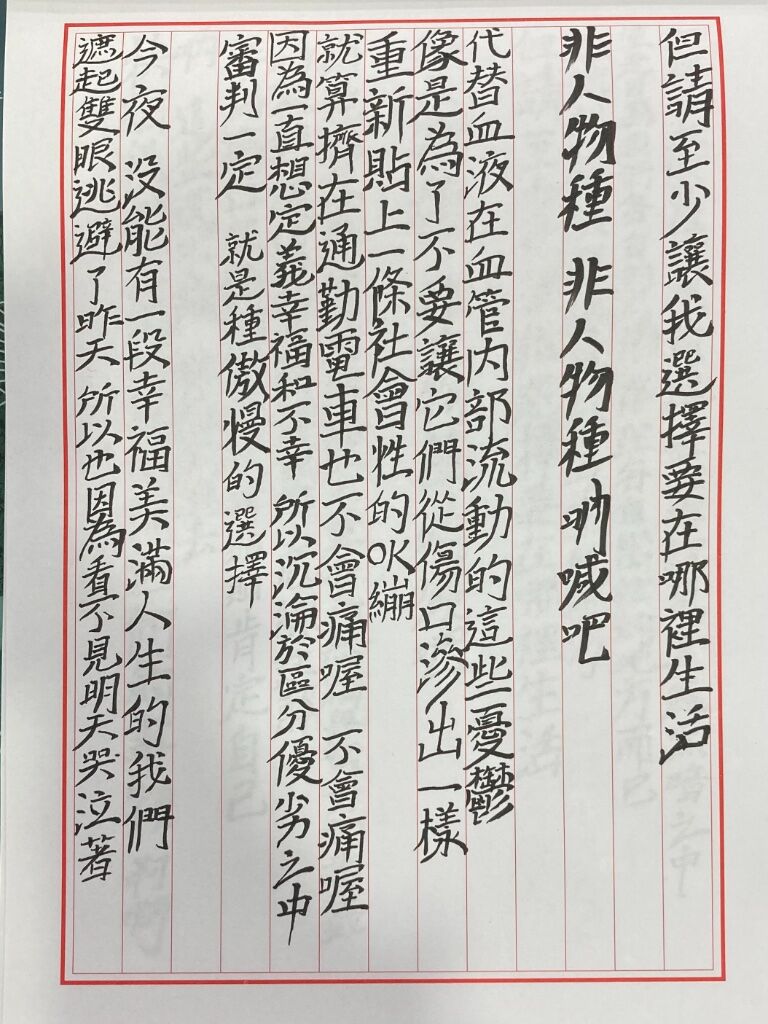 但請至少讓我選擇要在哪裡生活
非人物種 非人物種 吶喊吧
代替血液在血管內部流動的這些憂鬱
像是為了不要讓它們從傷口滲出一樣
重新貼上一條社會性的OK繃
就算擠在通勤電車也不會痛喔 不會痛喔
因為一直想定義幸福和不幸 所以沉淪於區分優劣之中
審判一定 就是種傲慢的選擇
今夜 沒能有一段幸福美滿人生的我們
遮起雙眼逃避了昨天 所以也因為看不見明天哭泣著